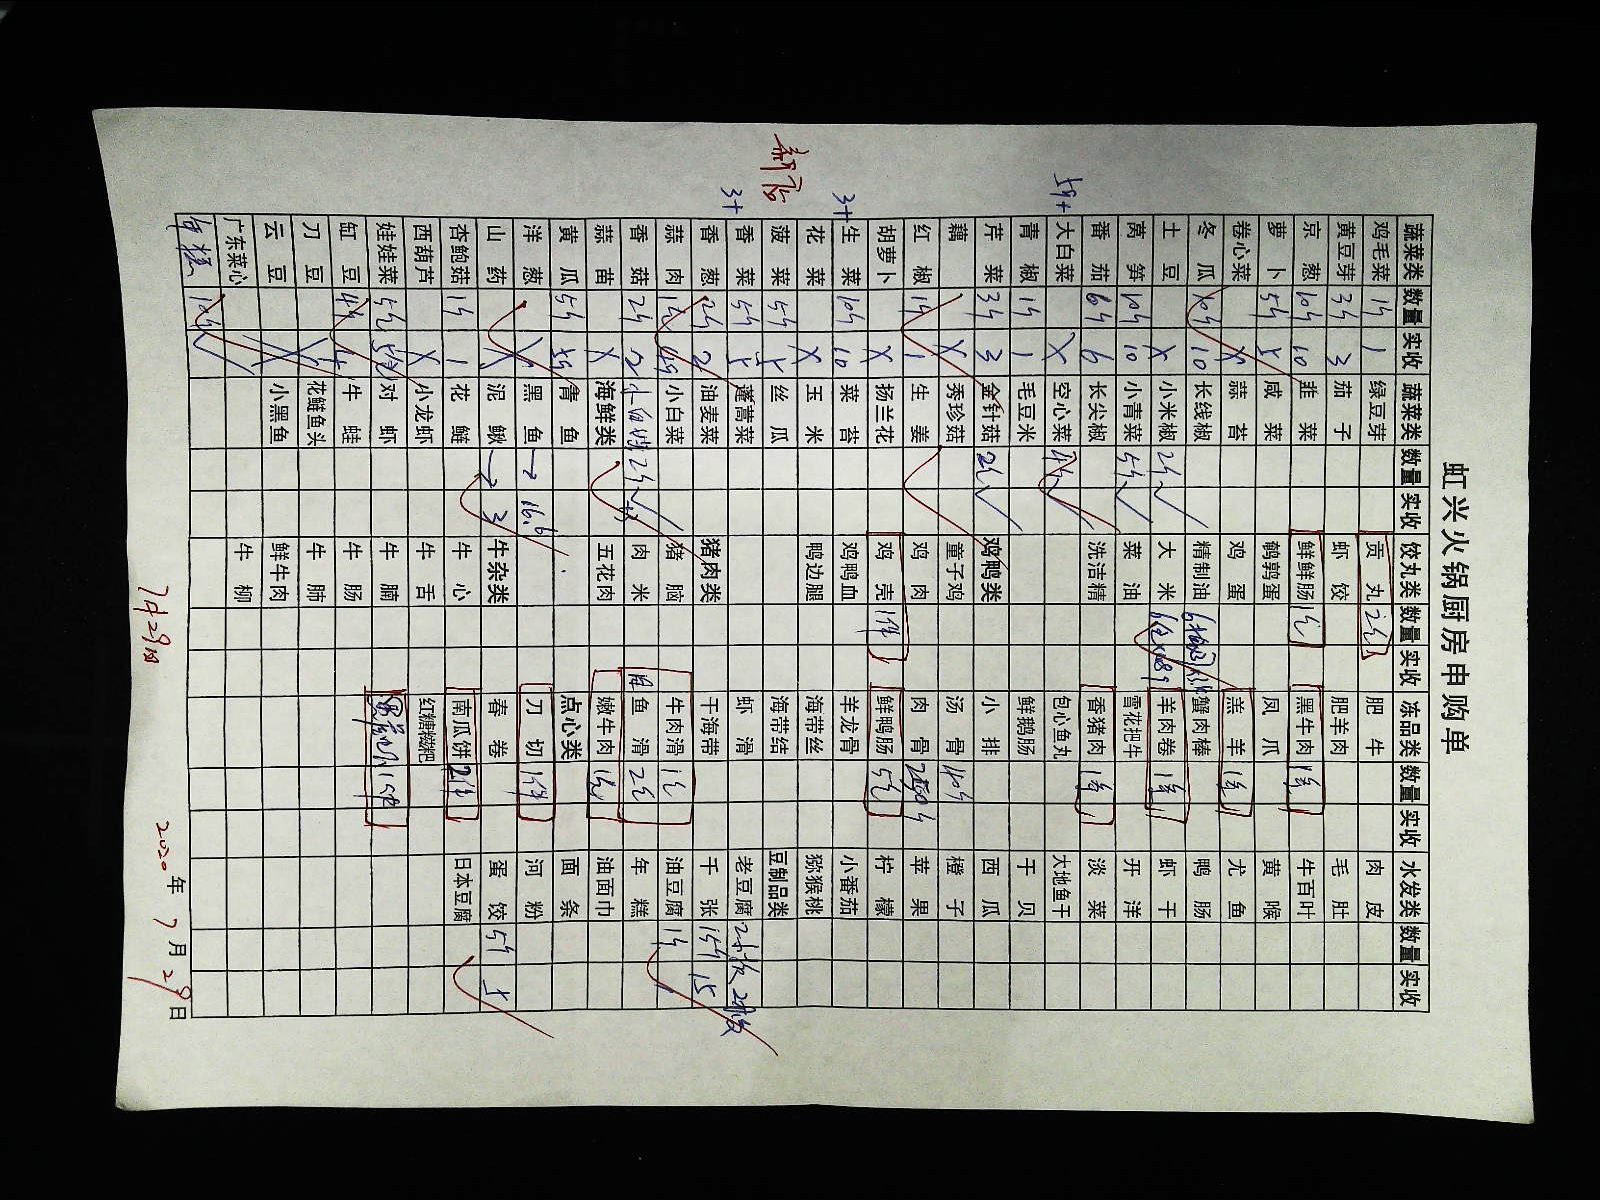 虹兴火锅厨房申购单
蔬菜类 数量 实收 蔬菜类 数量 实收 饺丸类 数量 实收 冻品类 数量 实收 水发类 数量 实收
鸡毛菜 1斤 1 绿豆芽 贡丸 2包 肥牛 肉皮
黄豆芽 3斤 3 茄子 虾饺 肥羊肉 毛肚
京葱 10斤 10 韭菜 鲜鲜肠 1包 黑牛肉 1条 牛百叶
萝卜 5斤 5 咸菜 鹌鹑蛋 凤爪 黄喉
卷心菜 X 蒜苔 鸡蛋 羔羊 1条 尤鱼
冬瓜 10斤 10 长线椒 精制油 蟹肉棒 鸭肠
土豆 X 小米椒 2斤 大米 羊肉卷 1条 虾干
莴笋 10斤 10 小青菜 5斤 菜油 雪花把牛 开洋
番茄 6斤 6 长尖椒 洗洁精 香猪肉 1条 淡菜
5斤+ 大白菜 X 空心菜 4斤 包心鱼丸 大地鱼干
青椒 1斤 1 毛豆米 鲜鹅肠 干贝
芹菜 3斤 3 金针菇 2斤 鸡鸭类 小排 西瓜
藕 X 秀珍菇 童子鸡 汤骨 40斤 橙子
红椒 1斤 1 生姜 鸡肉 肉骨 苹果
胡萝卜 X 扬兰花 鸡壳 1件 鲜鸭肠 5包 柠檬
3+ 生菜 10斤 10 菜苔 鸡鸭血 羊龙骨 小番茄
花菜 X 玉米 鸭边腿 海带丝 猕猴桃
菠菜 5斤 5 丝瓜 海带结 豆制品类
香菜 5斤 5 蓬蒿菜 虾滑 老豆腐 2板 2板
3+ 香葱 2斤 2 油麦菜 猪肉类 干海带 千张 15斤 15
蒜肉 小白菜 猪脑 牛肉滑 1包 油豆腐 1斤
香菇 2斤 2 2斤 肉米 鱼滑 2包 年糕
蒜苗 X 海鲜类 五花肉 嫩牛肉 1包 油面巾
黄瓜 5斤 青鱼 点心类 面条
洋葱 X 黑鱼 2 16.6 刀切 1件 河粉
山药 X 泥鳅 2 3 牛杂类 春卷 蛋饺 5斤 5
杏鲍菇 1斤 1 花鲢 牛心 南瓜饼 2件 日本豆腐
西葫芦 X 小龙虾 牛舌 红糖糍粑
娃娃菜 5包 5包 对虾 牛腩
缸豆 4斤 4 牛蛙 牛肠
刀豆 X 花鲢鱼头 牛肺
云豆 X 小黑鱼 鲜牛肉
广东菜心 牛柳
10斤
新店
7月29日
2020年7月29日